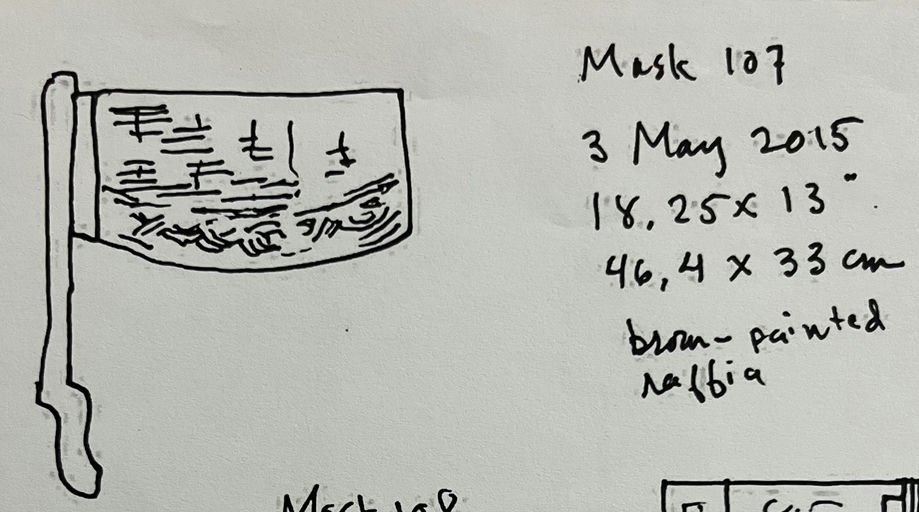 Mask 107
3 May 2015
18.25 x 13"
46,4 x 33 cm
brown-painted
raffia
Mask 108